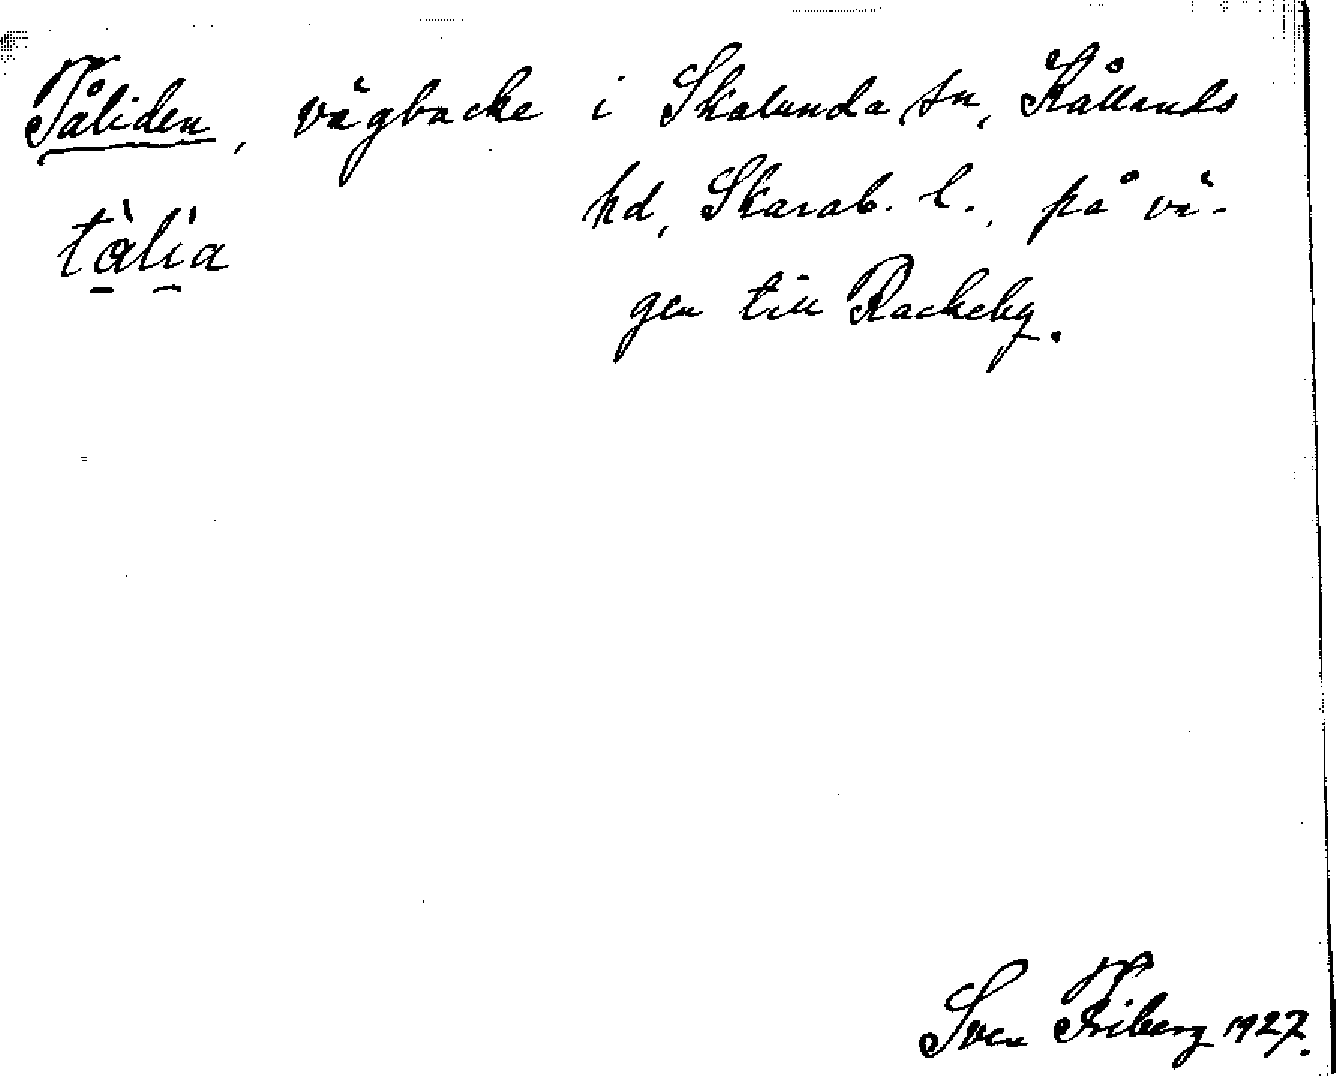 Tåliden, vägbacke i Skalunda sn, Kållands
hd, Skarab. l., på vä-
tàlía
gen till Rackeby.
Sven Friberg 1927.